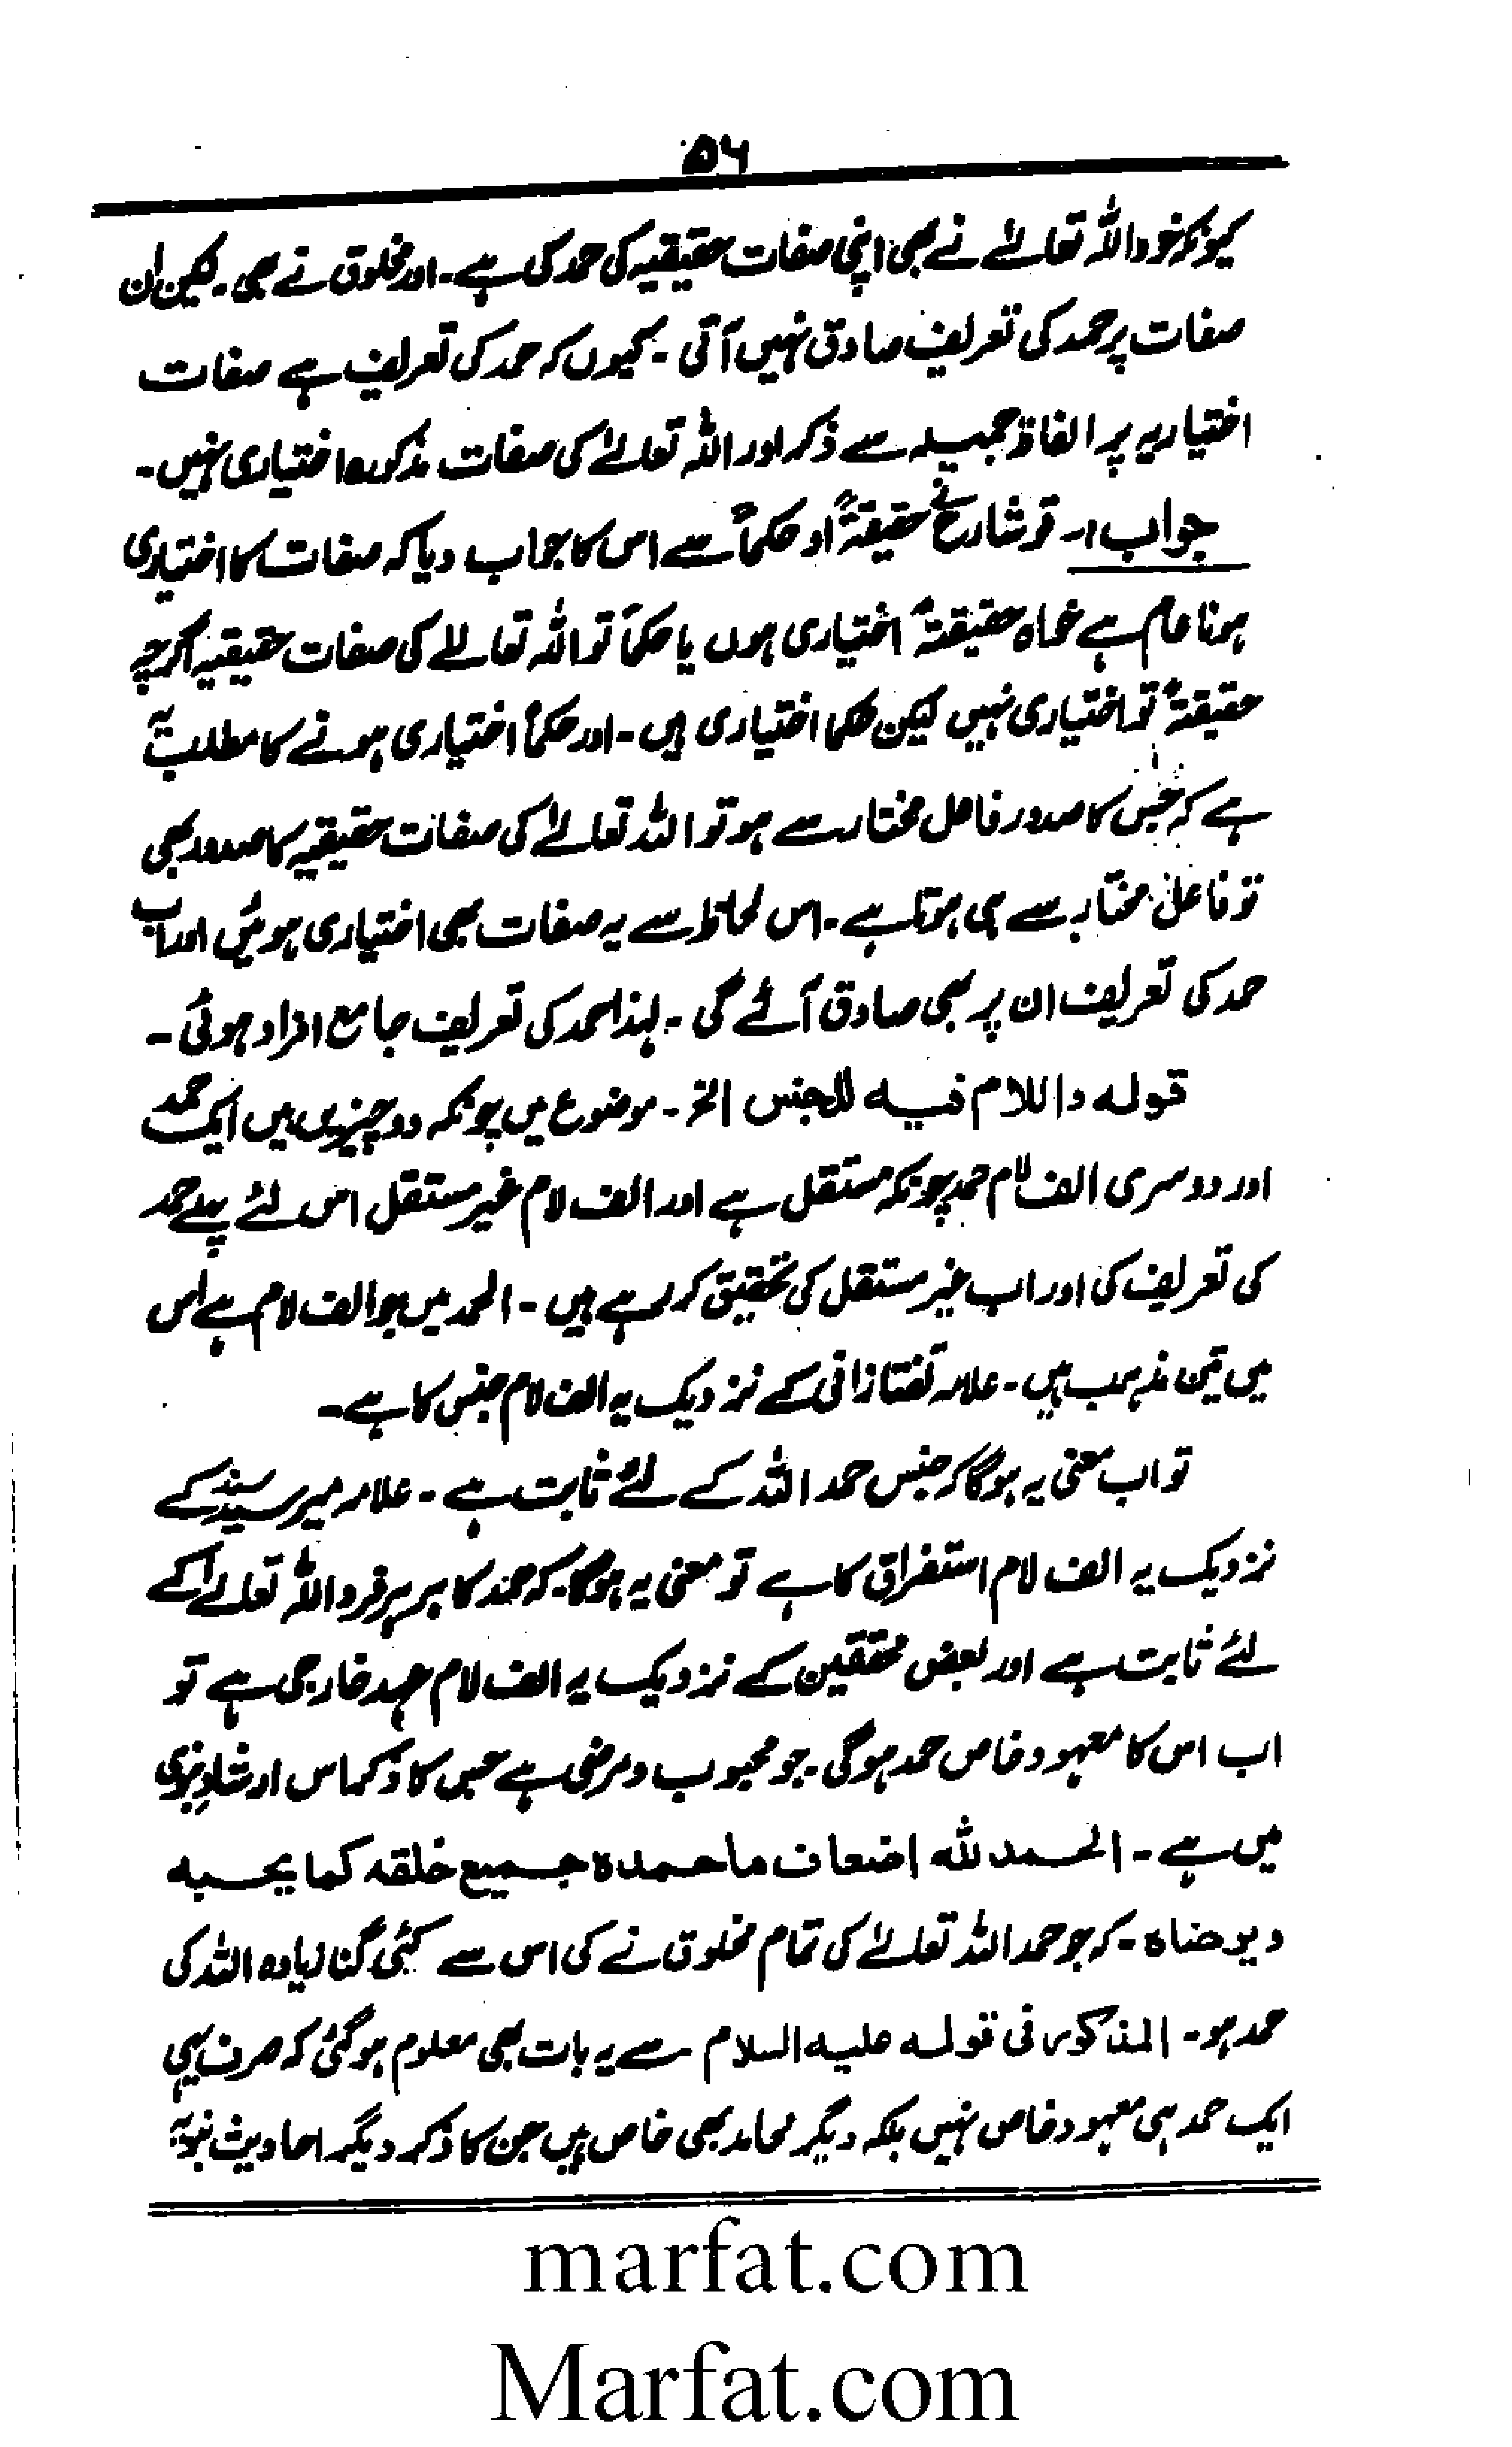 ۵۶
کیونکہ خود اللہ تعالےٰ نے بھی اپنی صفات حقیقیہ کی حمد کی ہے۔ اور مخلوق نے بھی۔ لیکن ان
صفات پر حمد کی تعریف صادق نہیں آتی۔ کیوں کہ حمد کی تعریف ہے صفات
اختیاریہ پر الفاظ جمیلہ سے ذکر اور اللہ تعالےٰ کی صفات مذکورہ اختیاری نہیں۔
جواب:۔ تو شارح نے حقیقۃً او حکماً سے اس کا جواب دیا کہ صفات کا اختیاری
ہونا عام ہے خواہ حقیقۃً اختیاری ہوں یا حکماً تو اللہ تعالےٰ کی صفات حقیقیہ اگرچہ
حقیقۃً تو اختیاری نہیں لیکن حکما اختیاری ہیں۔ اور حکماً اختیاری ہونے کا مطلب یہ
ہے کہ جس کا صدور فاعل مختار سے ہو تو اللہ تعالےٰ کی صفات حقیقیہ کا صدور بھی
تو فاعل مختار سے ہی ہوتا ہے۔ اس لحاظ سے یہ صفات بھی اختیاری ہوئیں اور اب
حمد کی تعریف ان پر بھی صادق آئے گی۔ لہذا حمد کی تعریف جامع افراد ہوئی۔
قولہ واللام فیہ للجنس الخ۔ موضوع میں چونکہ دو چیزیں ہیں ایک حمد
اور دوسری الف لام حمد چونکہ مستقل ہے اور الف لام غیر مستقل اس لئے پہلے حمد
کی تعریف کی اور اب غیر مستقل کی تحقیق کر رہے ہیں۔ الحمد میں جو الف لام ہے اس
میں تین مذہب ہیں۔ علامہ تفتازانی کے نزدیک یہ الف لام جنس کا ہے۔
تو اب معنی یہ ہوگا کہ جنس حمد اللہ کے لئے ثابت ہے۔ علامہ میر سید سند کے
نزدیک یہ الف لام استغراق کا ہے تو معنی یہ ہوگا۔ کہ حمد کا ہر ہر فرد اللہ تعالےٰ کے
لئے ثابت ہے اور بعض محققین کے نزدیک یہ الف لام عہد خارجی ہے تو
اب اس کا معہود خاص حمد ہوگی۔ جو محبوب و مرضی ہے جس کا ذکر اس ارشادِ نبوی
میں ہے۔ الحمد للہ اضعاف ما حمدہ جمیع خلقہ کما یحبہ
ویرضاہ۔ کہ جو حمد اللہ تعالےٰ کی تمام مخلوق نے کی اس سے کئی گنا زیادہ اللہ کی
حمد ہو۔ المذکور فی قولہ علیہ السلام سے یہ بات بھی معلوم ہوگئی کہ صرف یہی
ایک حمد ہی معہود خاص نہیں بلکہ دیگر محامد بھی خاص ہیں جن کا ذکر دیگر احادیث نبویہ
marfat.com
Marfat.com